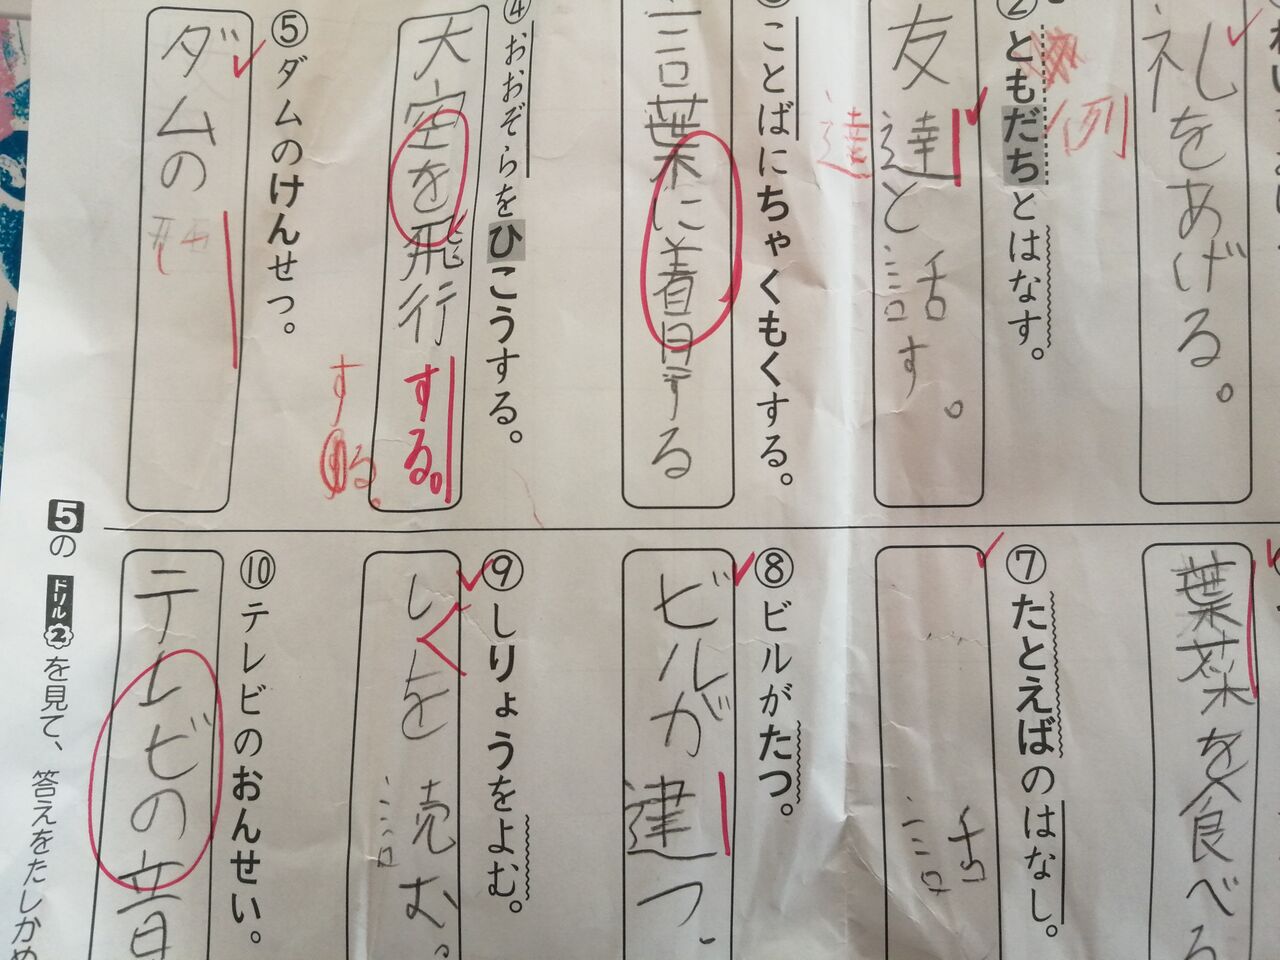 礼をあげる。
②ともだちとはなす。
例
友達と話す。
達
ことばにちゃくもくする。
言葉に着目する
④おおぞらをひこうする。
大空を飛行する。
する。
⑤ダムのけんせつ。
ダムの
葉菜を食べる
⑦たとえばのはなし。
話
⑧ビルがたつ。
ビルが建つ.
⑨しりょうをよむ。
しを読む。
⑩テレビのおんせい。
テレビの音
5の ドリル2を見て、答えをたしかめ